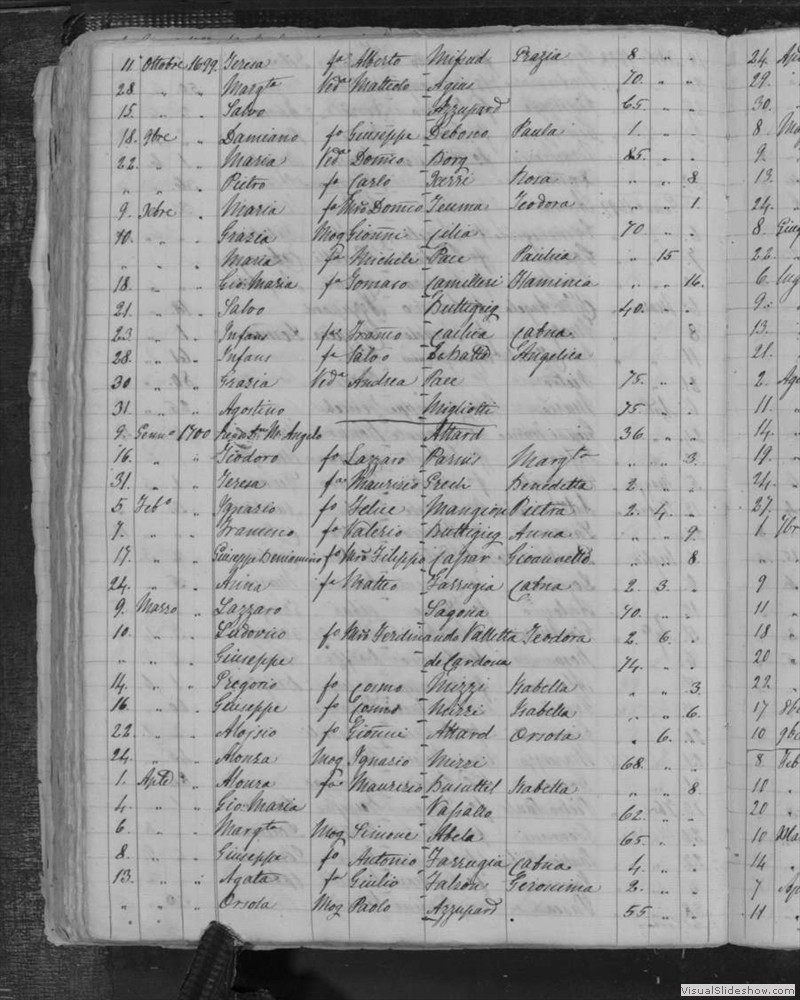 11 Ottobre 1699. Teresa fa Alberto Mifsud Grazia 8 " "
28. " " Margta Veda Matteolo Agius 70. " "
15. " " Salvo Azzupard 65. " "
18. 9bre " Damiano fo Giuseppe Debono Paula 1. " "
22. " " Maria Veda Domco Borg 85. " "
" " " Pietro fo Carlo Xerri Rosa " " 8
9. Xbre " Maria fa Mro Domco Teuma Teodora " " 1.
10. " " Grazia Mog Gionni Cilia 70 " "
" " " Maria fa Michele Pace Paulica " 15 "
18. " " Gio: Maria fo Tomaso Camilleri Flaminia " " 16.
21. " " Salvo Buttigieg 40. " "
23. " " Infans Franco Cachia Catna
28. " " Infans fa Salvo Angelica
30 " " Grazia Veda Andrea Pace 75. " "
31. " " Agostino Migliotti 75. " "
9. Genno 1700 Mo Angelo Attard 36. " "
16. " " Teodoro fo Lazzaro Parnis Margta " " 3.
31. " " Teresa fa Maurizio Grech Benedetta 2. " "
5. Febo " Ignazio fo Felice Mangion Pietra 2. 4. "
7. " " Francesco fo Valerio Buttigieg Anna " " 9.
17. " " Giuseppe Beniamino fo Mro Filippo Caspar " " 8
24. " " Anna fa Matteo Farrugia Catna 2 3. "
9. Marzo " Lazzaro Sagona 70. " "
10. " " Ludovico fo Mro Ferdinando Valletta Teodora 2. 6. "
" " " Giuseppe de Cardona 74. " "
14. " " Gregorio fo Cosmo Mizzi Isabella " " 3.
16. " " Giuseppe fo Cosmo Mizzi Isabella " " 6.
22. " " Aloisio fo Gionni Attard Orsola " 6. "
24. " " Alonza Mog Ignazio Mizzi 68. " "
1. Aple " Alonza fa Maurizio Busuttil Isabella " " 8
4. " " Gio: Maria Vassallo 62. " "
6. " " Margta Mog Simone Abela 65. " "
8. " " Giuseppe fo Antonio Farrugia Catna 4. " "
13. " " Agata fa Giulio Falzon Geronima 2. " "
" " " Orsola Mog Paolo Azzupard 55 " "
24. Ap
29.
30.
8 Ma
9.
13.
24.
8 Giug
22.
6. lug
9.
13.
21.
2. Ago
11.
14.
19.
24.
27.
1. 7br
9
11
18
20
22
17 8b
10 9b
8. Feb
10
20
10 Ma
14
7 Ap
11
VisualSlideshow.com